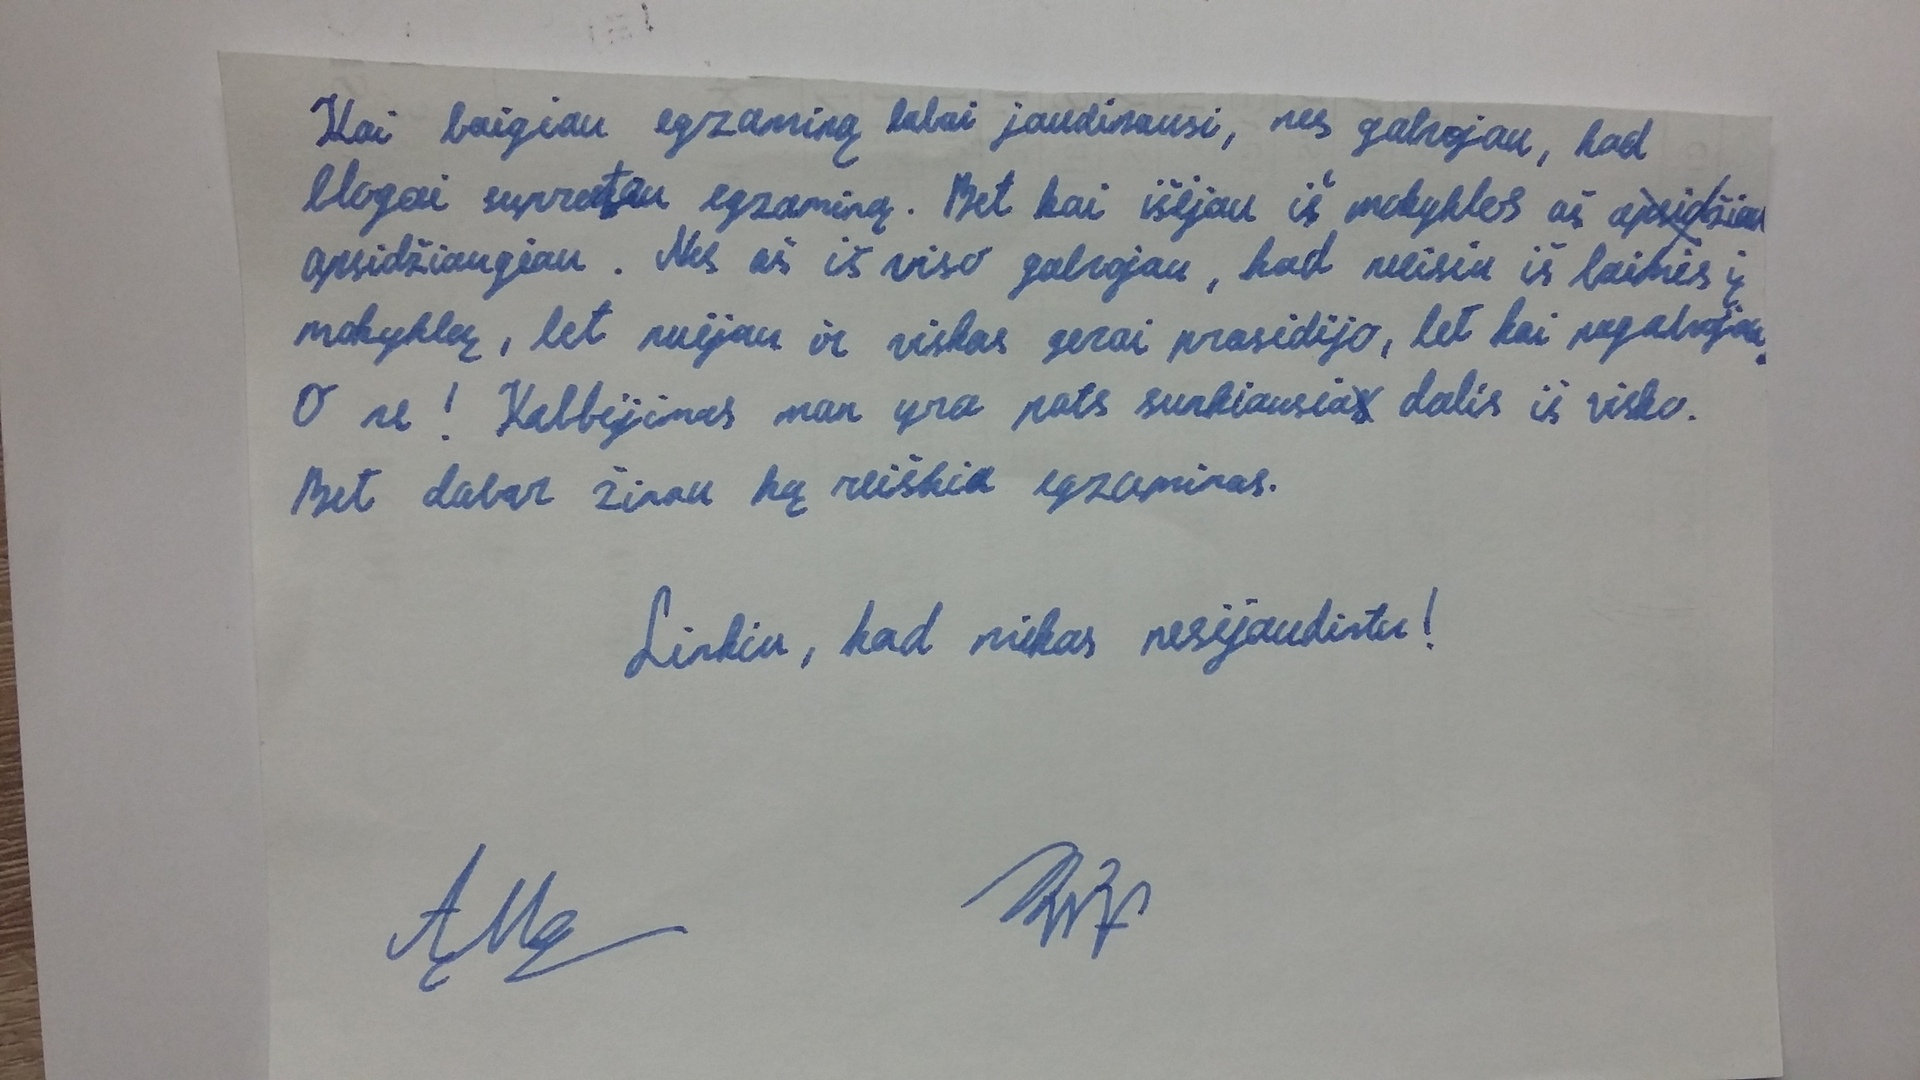 Kai baigiau egzaminą labai jaudinausi, nes galvojau, kad
blogai supratau egzaminą. Bet kai išėjau iš mokyklos aš apsidžiau
apsidžiaugiau. Nes aš iš viso galvojau, kad neisiu iš baimės į
mokyklą, bet nuėjau ir viskas gerai prasidėjo, bet kai pagalvojau.
O ne! Kalbėjimas man yra pats sunkiausia dalis iš visko.
Bet dabar žinau ką reiškia egzaminas.
Linkiu, kad niekas nesijaudintu!